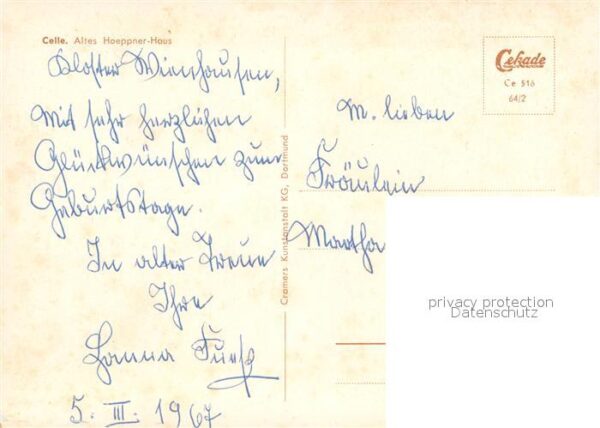 Celle. Altes Hoeppner-Haus
Kloster Wienhausen,
Mit sehr herzlichen
Glückwünschen zum
Geburtstage.
In alter Treue
Ihre
Hanna Fueß
5. III. 1967
Cramers Kunstanstalt KG, Dortmund
Cekade
Ce 516
64/2
M. lieben
Fräulein
Martha
privacy protection
Datenschutz